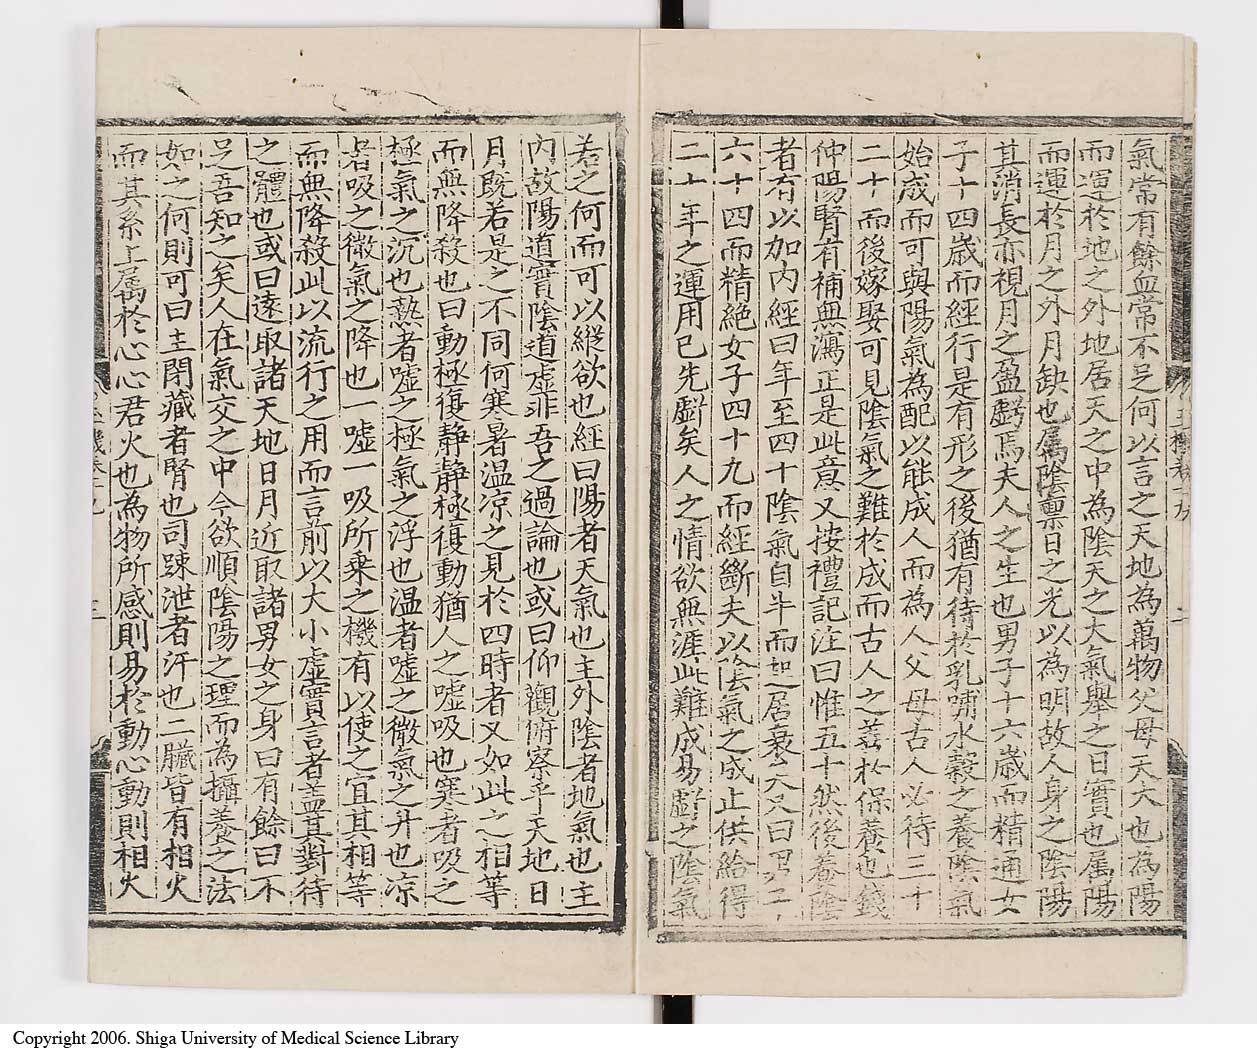 氣常有餘血常不足何以言之天地為萬物父母天大也為陽
而運於地之外地居天之中為陰天之大氣舉之日實也属陽
而運於月之外月缺也属陰禀日之光以為明故人身之陰陽
其消長亦視月之盈虧焉夫人之生也男子十六歲而精通女
子十四歲而經行是有形之後猶有待於乳哺水穀之養陰氣
始成而可與陽氣為配以能成人而為人父母古人必待三十
二十而後嫁娶可見陰氣之難於成而古人之善於保養也錢
仲陽腎有補無瀉正是此意又按禮記注曰惟五十然後養陰
者有以加內經曰年至四十陰氣自半而起居衰矣又曰男子
六十四而精絶女子四十九而經斷夫以陰氣之成止供給得
三十年之運用已先虧矣人之情欲無涯此難成易虧之陰氣
若之何而可以縱欲也經曰陽者天氣也主外陰者地氣也主
內故陽道實陰道虛非吾之過論也或曰仰觀俯察乎天地日
月既若是之不同何寒暑温凉之見於四時者又如此之相等
而無降殺也曰動極復静静極復動猶人之噓吸也寒者吸之
極氣之沉也熱者噓之極氣之浮也温者噓之微氣之升也凉
者吸之微氣之降也一噓一吸所乗之機有以使之宜其相等
而無降殺此以流行之用而言前以大小虛實言者盖其對待
之體也或曰遠取諸天地日月近取諸男女之身曰有餘曰不
足吾知之矣人在氣交之中今欲順陰陽之理而為攝養之法
如之何則可曰主閉藏者腎也司踈泄者汗也二臟皆有相火
而其系上属於心心君火也為物所感則易於動心動則相火
Copyright 2006. Shiga University of Medical Science Library